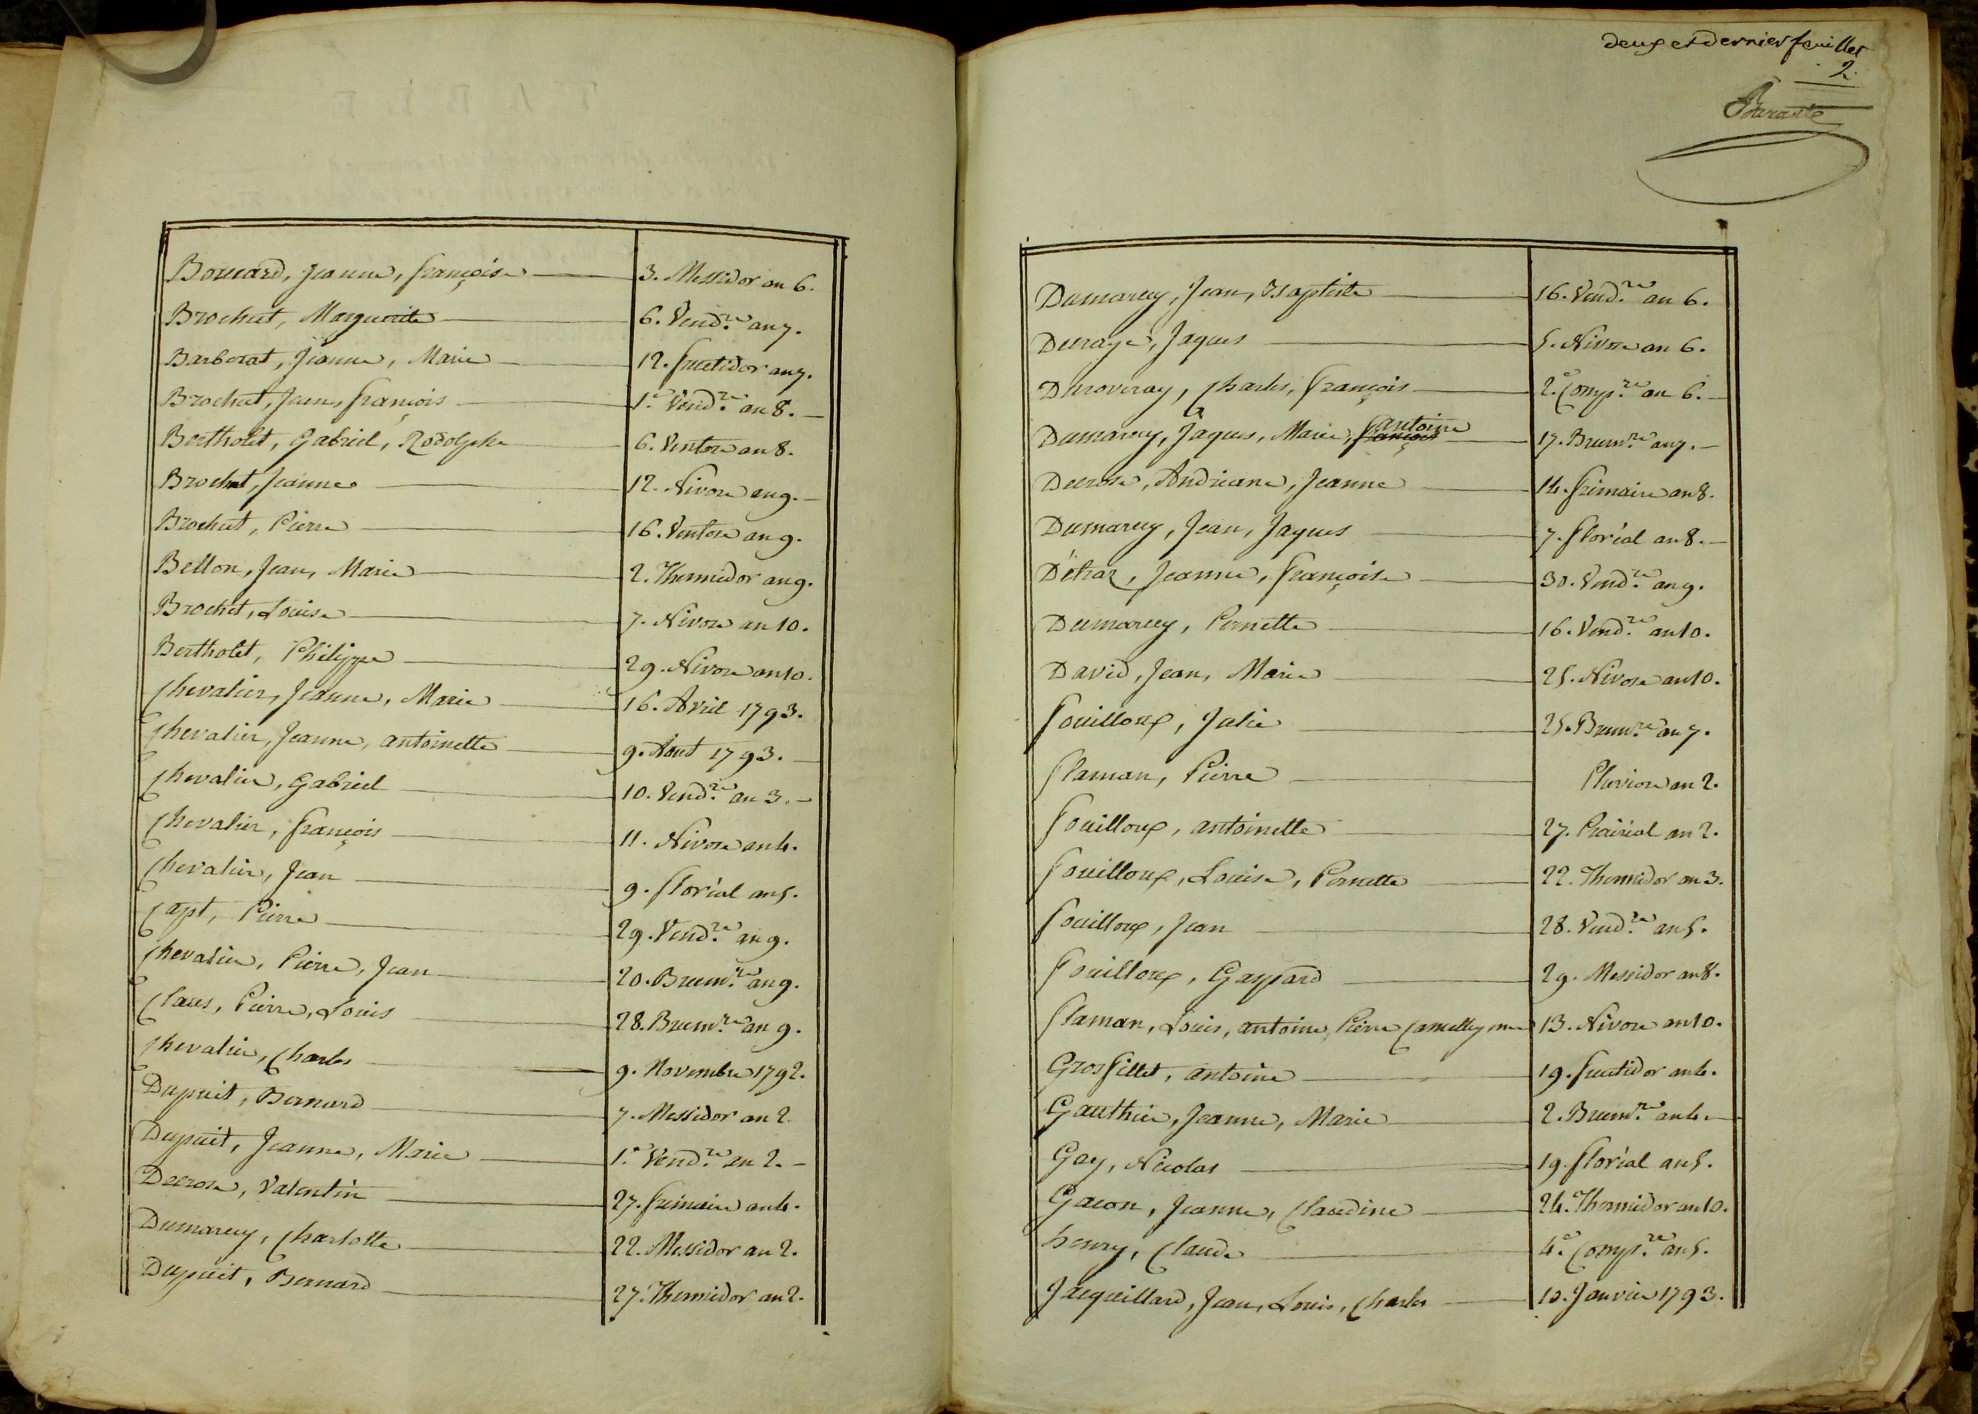 Bouvard, Jeanne, françoise 3. Messidor an 6.
Brochut, Marguerite 6. Vend.re an 7.
Barborat, Jeanne, Marie 12. fructidor an 7.
Brochut, Jean, françois 1.e Vend.re an 8.
Bertholet, Gabriel, Rodolphe 6. Ventose an 8.
Brochut, Jeanne 12. Nivose an 9.
Brochut, Pierre 16. Ventose an 9.
Bellon, Jean, Marie 2. Thermidor an 9.
Brochet, Louise 7. Nivose an 10.
Bertholet, Philippe 29. Nivose an 10.
Chevalier, Jeanne, Marie 16. Avril 1793.
Chevalier, Jeanne, antoinette 9. Aout 1793.
Chevalier, Gabriel 10. Vend.re an 3.
Chevalier, françois 11. Nivose an 4.
Chevalier, Jean 9. floréal an 5.
Capt, Pierre 29. Vend.re an 9.
Chevalier, Pierre, Jean 20. Brum.re an 9.
Claus, Pierre, Louis 28. Brum.re an 9.
Chevalier, Charles 9. Novembre 1792.
Dupuit, Bernard 7. Messidor an 2.
Dupuit, Jeanne, Marie 1.e Vend.re an 2.
Decrose, Valentin 27. frimaire an 4.
Dumarcy, Charlotte 22. Messidor an 2.
Dupuit, Bernard 27. Thermidor an 2.
deux et dernier feuillet
2.
Dumarcy, Jean, Baptiste 16. Vend.re an 6.
Jaques 5. Nivose an 6.
Duroveray, Charles, françois 2.e Comp.re an 6.
antoine
Dumarcy, Jaques, Marie, françois 17. Brum.re an 7.
Decrose, Andriane, Jeanne 14. frimaire an 8.
Dumarcy, Jean, Jaques 7. floréal an 8.
Détraz, Jeanne, françoise 30. Vend.re an 9.
Dumarcy, Pernette 16. Vend.re an 10.
David, Jean, Marie 25. Nivose an 10.
fouilloux, Julie 25. Brum.re an 7.
flaman, Pierre Pluviose an 2.
fouilloux, antoinette 27. Prairial an 2.
fouilloux, Louise, Pernette 22. Thermidor an 3.
fouilloux, Jean 28. Vend.re an 5.
fouilloux, Gaspard 29. Messidor an 8.
flaman, Louis, antoine, Pierre 13. Nivose an 10.
Grosfillet, antoine 19. fructidor an 4.
Gauthier, Jeanne, Marie 2. Brum.re an 4.
Gay, Nicolas 19. floréal an 5.
Gacon, Jeanne, Claudine 24. Thermidor an 10.
henry, Claude 4.e Comp.re an 5.
Jacquillard, Jean, Louis, Charles 10. Janvier 1793.